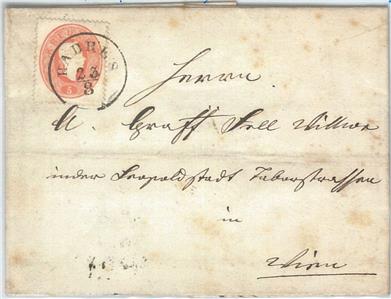 HADRES
23
8
Herrn
A. Graff Sell Witwe
in der Leopoldstadt Taborstrassen
in
Wien